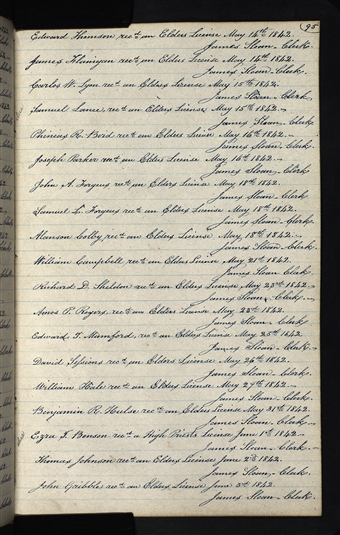 95
Edward Hunson rec.t an Elders License May 14th 1842.
James Sloan, Clerk.
James Flanigan rec.t an Elders License May 14th 1842.
James Sloan, Clerk.
Charles W. Lyon rec.t an Elders License May 15th 1842.
James Sloan, Clerk.
Samuel Lance rec.t an Elders License May 15th 1842.
James Sloan, Clerk.
Phineas R. Bird rec.t an Elders License May 16th 1842.
James Sloan, Clerk.
Joseph Parker rec.t an Elders License May 16th 1842.
James Sloan, Clerk.
John A. Forgeus rec.t an Elders License May 18th 1842.
James Sloan, Clerk.
Samuel L. Forgeus rec.t an Elders License May 18th 1842.
James Sloan, Clerk.
Alanson Colby rec.t an Elders License May 18th 1842.
James Sloan, Clerk.
William Campbell rec.t an Elders License May 21st 1842.
James Sloan, Clerk.
Richard D. Sheldon rec.t an Elders License May 23rd 1842.
James Sloan, Clerk.
Amos P. Rogers rec.t an Elders License May 23rd 1842.
James Sloan, Clerk.
Edward T. Mumford rec.t an Elders License May 25th 1842.
James Sloan, Clerk.
David rec.t an Elders License May 26th 1842.
James Sloan, Clerk.
William Hale rec.t an Elders License May 27th 1842.
James Sloan, Clerk.
Benjamin R. Hulse rec.t an Elders License May 31st 1842.
James Sloan, Clerk.
Ezra T. Benson rec.t a High Priests License June 1st 1842.
James Sloan, Clerk.
Thomas Johnson rec.t an Elders License June 2nd 1842.
James Sloan, Clerk.
John Gribble rec.t an Elders License June 3rd 1842.
James Sloan, Clerk.